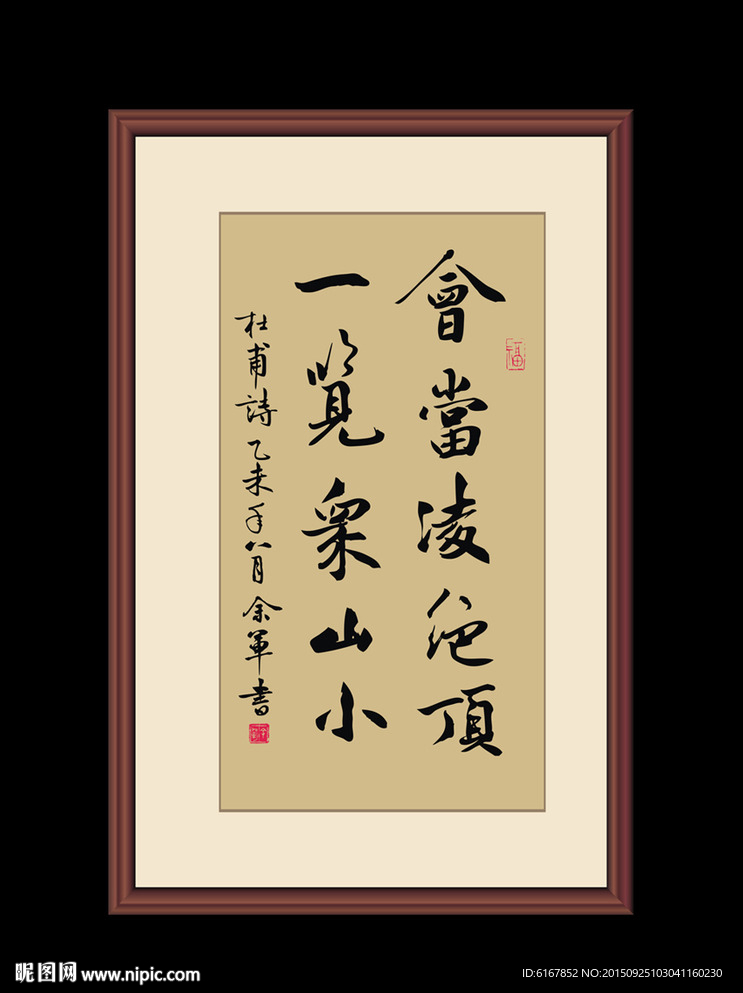 會當淩絕頂
一覽衆山小
杜甫詩 乙未年八月 余軍書
福
昵图网 www.nipic.com
ID:6167852 NO:20150925103041160230